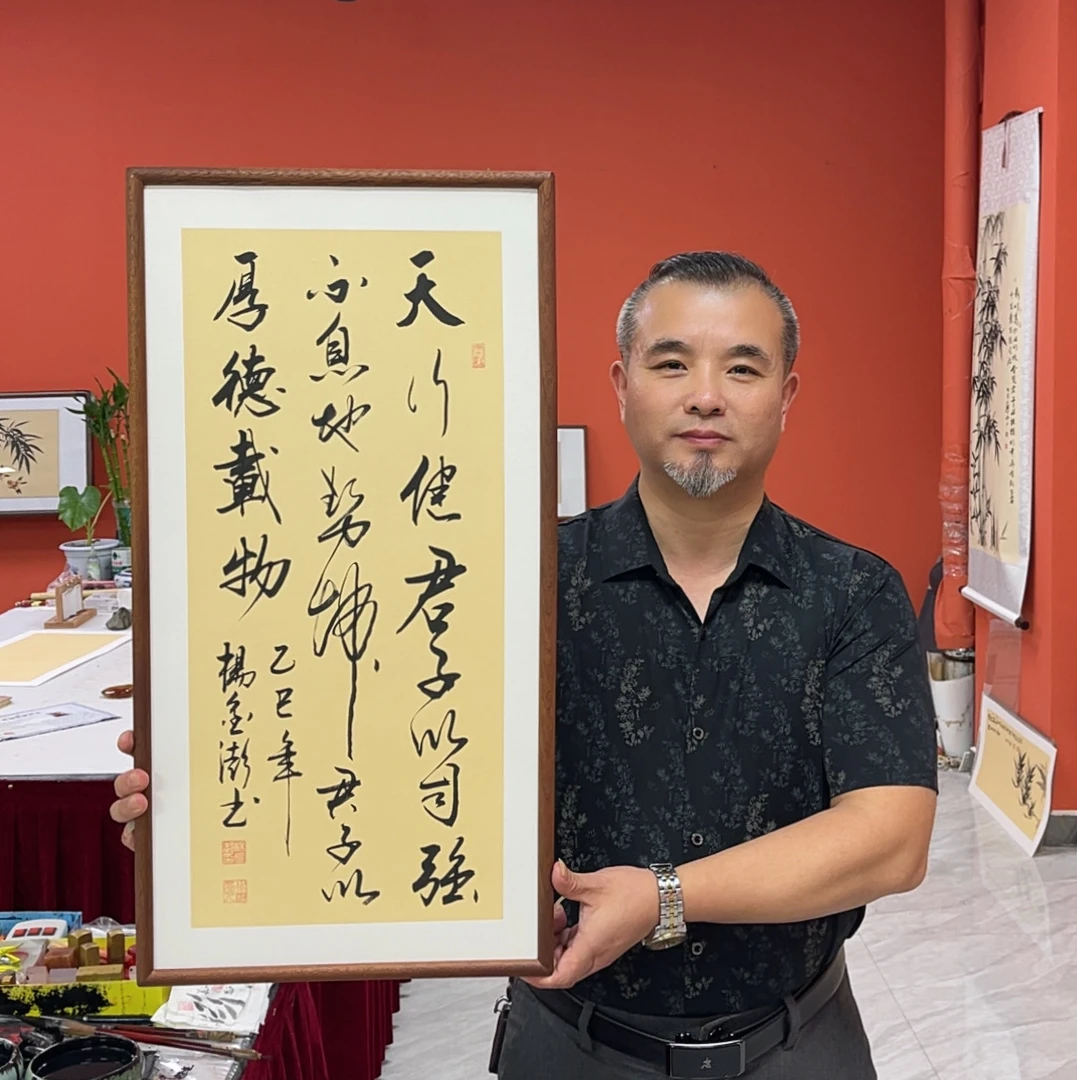 天行健君子以自强
不息地势坤君子以
厚德載物
乙巳年
楊金澎书